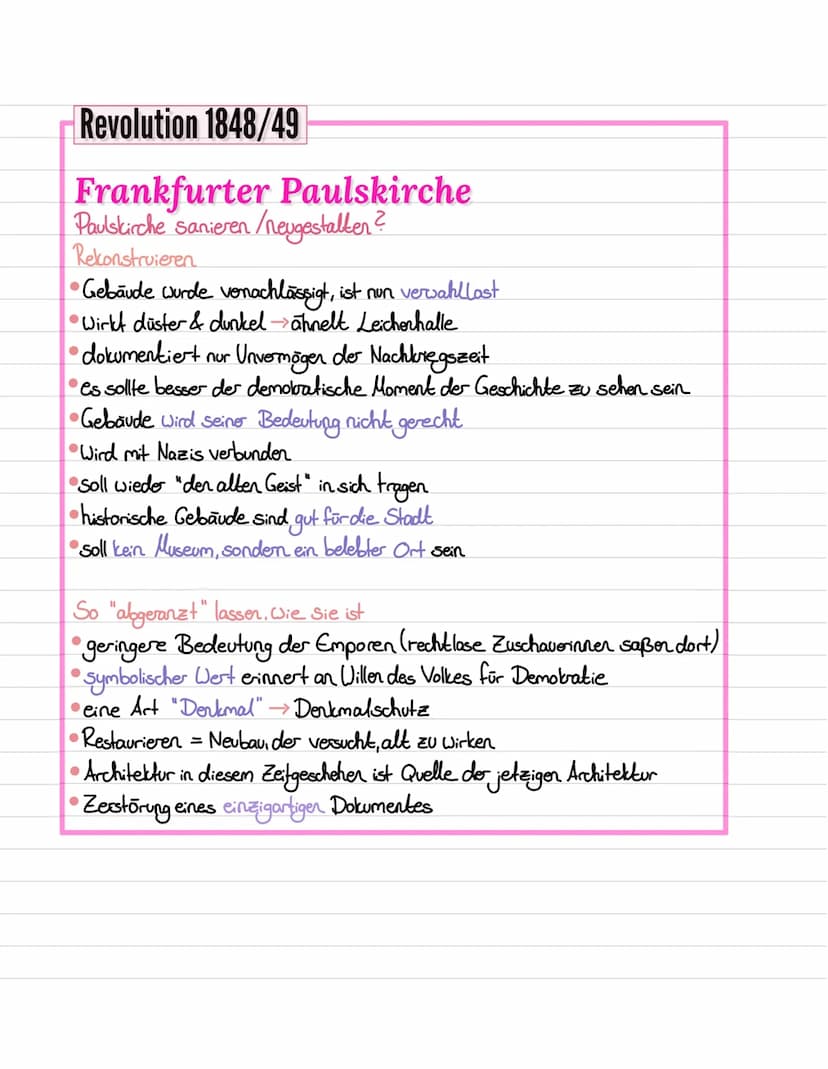 Revolution 1848/49
Frankfurter Paulskirche
Paulskirche sanieren/neugestalten?
Rekonstruieren
• Gebäude wurde vernachlässigt, ist nun verwahllost
• Wirkt düster & dunkel → ähnelt Leichenhalle
• dokumentiert nur Unvermögen der Nachkriegszeit
• es sollte besser der demokratische Moment der Geschichte zu sehen sein
• Gebäude wird seiner Bedeutung nicht gerecht
• Wird mit Nazis verbunden
• soll wieder "den alten Geist" in sich tragen
• historische Gebäude sind gut für die Stadt
• soll kein Museum, sondern ein belebter Ort sein
So "abgeranzt" lassen, wie sie ist
• geringere Bedeutung der Emporen (rechtlose Zuschauerinnen saßen dort)
• symbolischer Wert erinnert an Willen des Volkes für Demokratie
• eine Art "Denkmal" → Denkmalschutz
• Restaurieren = Neubau, der versucht, alt zu wirken
• Architektur in diesem Zeitgeschehen ist Quelle der jetzigen Architektur
• Zerstörung eines einzigartigen Dokumentes